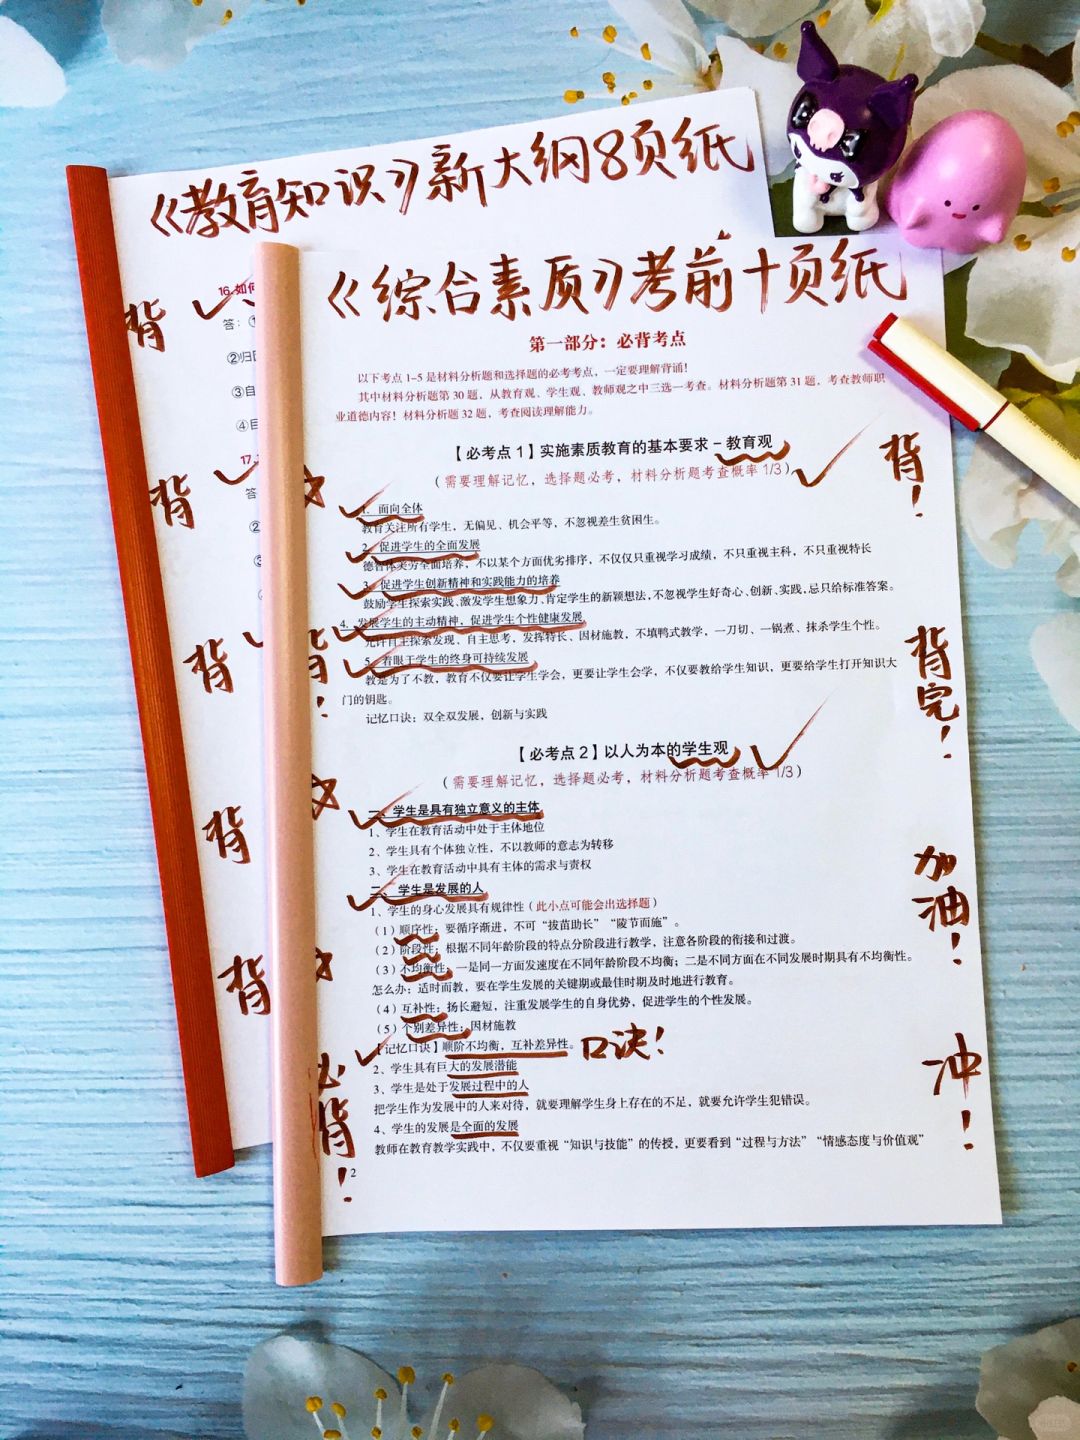 《教育知识》新大纲8页纸
16.如何
答：①
②归因
③自
④自
17.
答
②
③
背
背
背
背
背
《综合素质》考前十页纸
第一部分：必背考点
以下考点1-5是材料分析题和选择题的必考考点，一定要理解背诵！
其中材料分析题第30题，从教育观、学生观、教师观之中三选一考查。材料分析题第31题，考查教师职
业道德内容！材料分析题32题，考查阅读理解能力。
【必考点1】实施素质教育的基本要求－教育观
（需要理解记忆，选择题必考，材料分析题考查概率1/3）
1. 面向全体
教育关注所有学生，无偏见、机会平等，不忽视差生贫困生。
2. 促进学生的全面发展
德智体美劳全面培养，不以某个方面优劣排序，不仅仅只重视学习成绩，不只重视主科，不只重视特长
3. 促进学生创新精神和实践能力的培养
鼓励学生探索实践、激发学生想象力、肯定学生的新颖想法，不忽视学生好奇心、创新、实践，忌只给标准答案。
4. 发展学生的主动精神，促进学生个性健康发展
允许自主探索发现、自主思考，发挥特长、因材施教，不填鸭式教学，一刀切、一锅煮、抹杀学生个性。
5. 着眼于学生的终身可持续发展
教是为了不教，教育不仅要让学生学会，更要让学生会学，不仅要教给学生知识，更要给学生打开知识大
门的钥匙。
记忆口诀：双全双发展，创新与实践
【必考点2】以人为本的学生观
（需要理解记忆，选择题必考，材料分析题考查概率1/3）
一、学生是具有独立意义的主体
1、学生在教育活动中处于主体地位
2、学生具有个体独立性，不以教师的意志为转移
3、学生在教育活动中具有主体的需求与责权
二、学生是发展的人
1、学生的身心发展具有规律性（此小点可能会出选择题）
（1）顺序性：要循序渐进，不可“拔苗助长”“陵节而施”。
（2）阶段性：根据不同年龄阶段的特点分阶段进行教学，注意各阶段的衔接和过渡。
（3）不均衡性：一是同一方面发速度在不同年龄阶段不均衡；二是不同方面在不同发展时期具有不均衡性。
怎么办：适时而教，要在学生发展的关键期或最佳时期及时地进行教育。
（4）互补性：扬长避短，注重发展学生的自身优势，促进学生的个性发展。
（5）个别差异性：因材施教
【记忆口诀】顺阶不均衡，互补差异性。 口诀！
2、学生具有巨大的发展潜能
3、学生是处于发展过程中的人
把学生作为发展中的人来对待，就要理解学生身上存在的不足，就要允许学生犯错误。
4、学生的发展是全面的发展
教师在教育教学实践中，不仅要重视“知识与技能”的传授，更要看到“过程与方法”“情感态度与价值观”
2
背！
必背！
背！
背完！
加油！
冲！